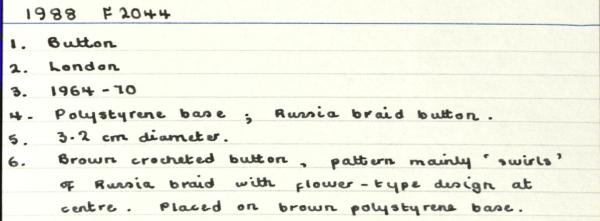 1988 F2044
1. Button
2. London
3. 1964-70
4. Polystyrene base ; Russia braid button.
5. 3.2 cm diameter.
6. Brown crocheted button, pattern mainly 'swirls'
of Russia braid with flower-type design at
centre. Placed on brown polystyrene base.